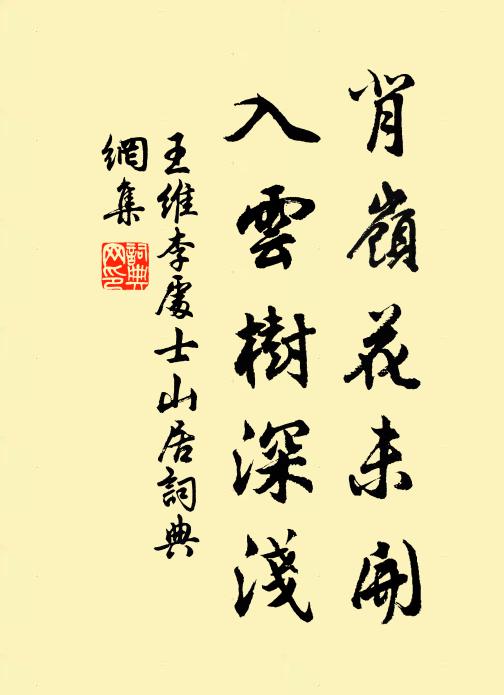 肖嶺花未開
入雲樹深淺
王維李處士山居詞典
網集
詞典
网印